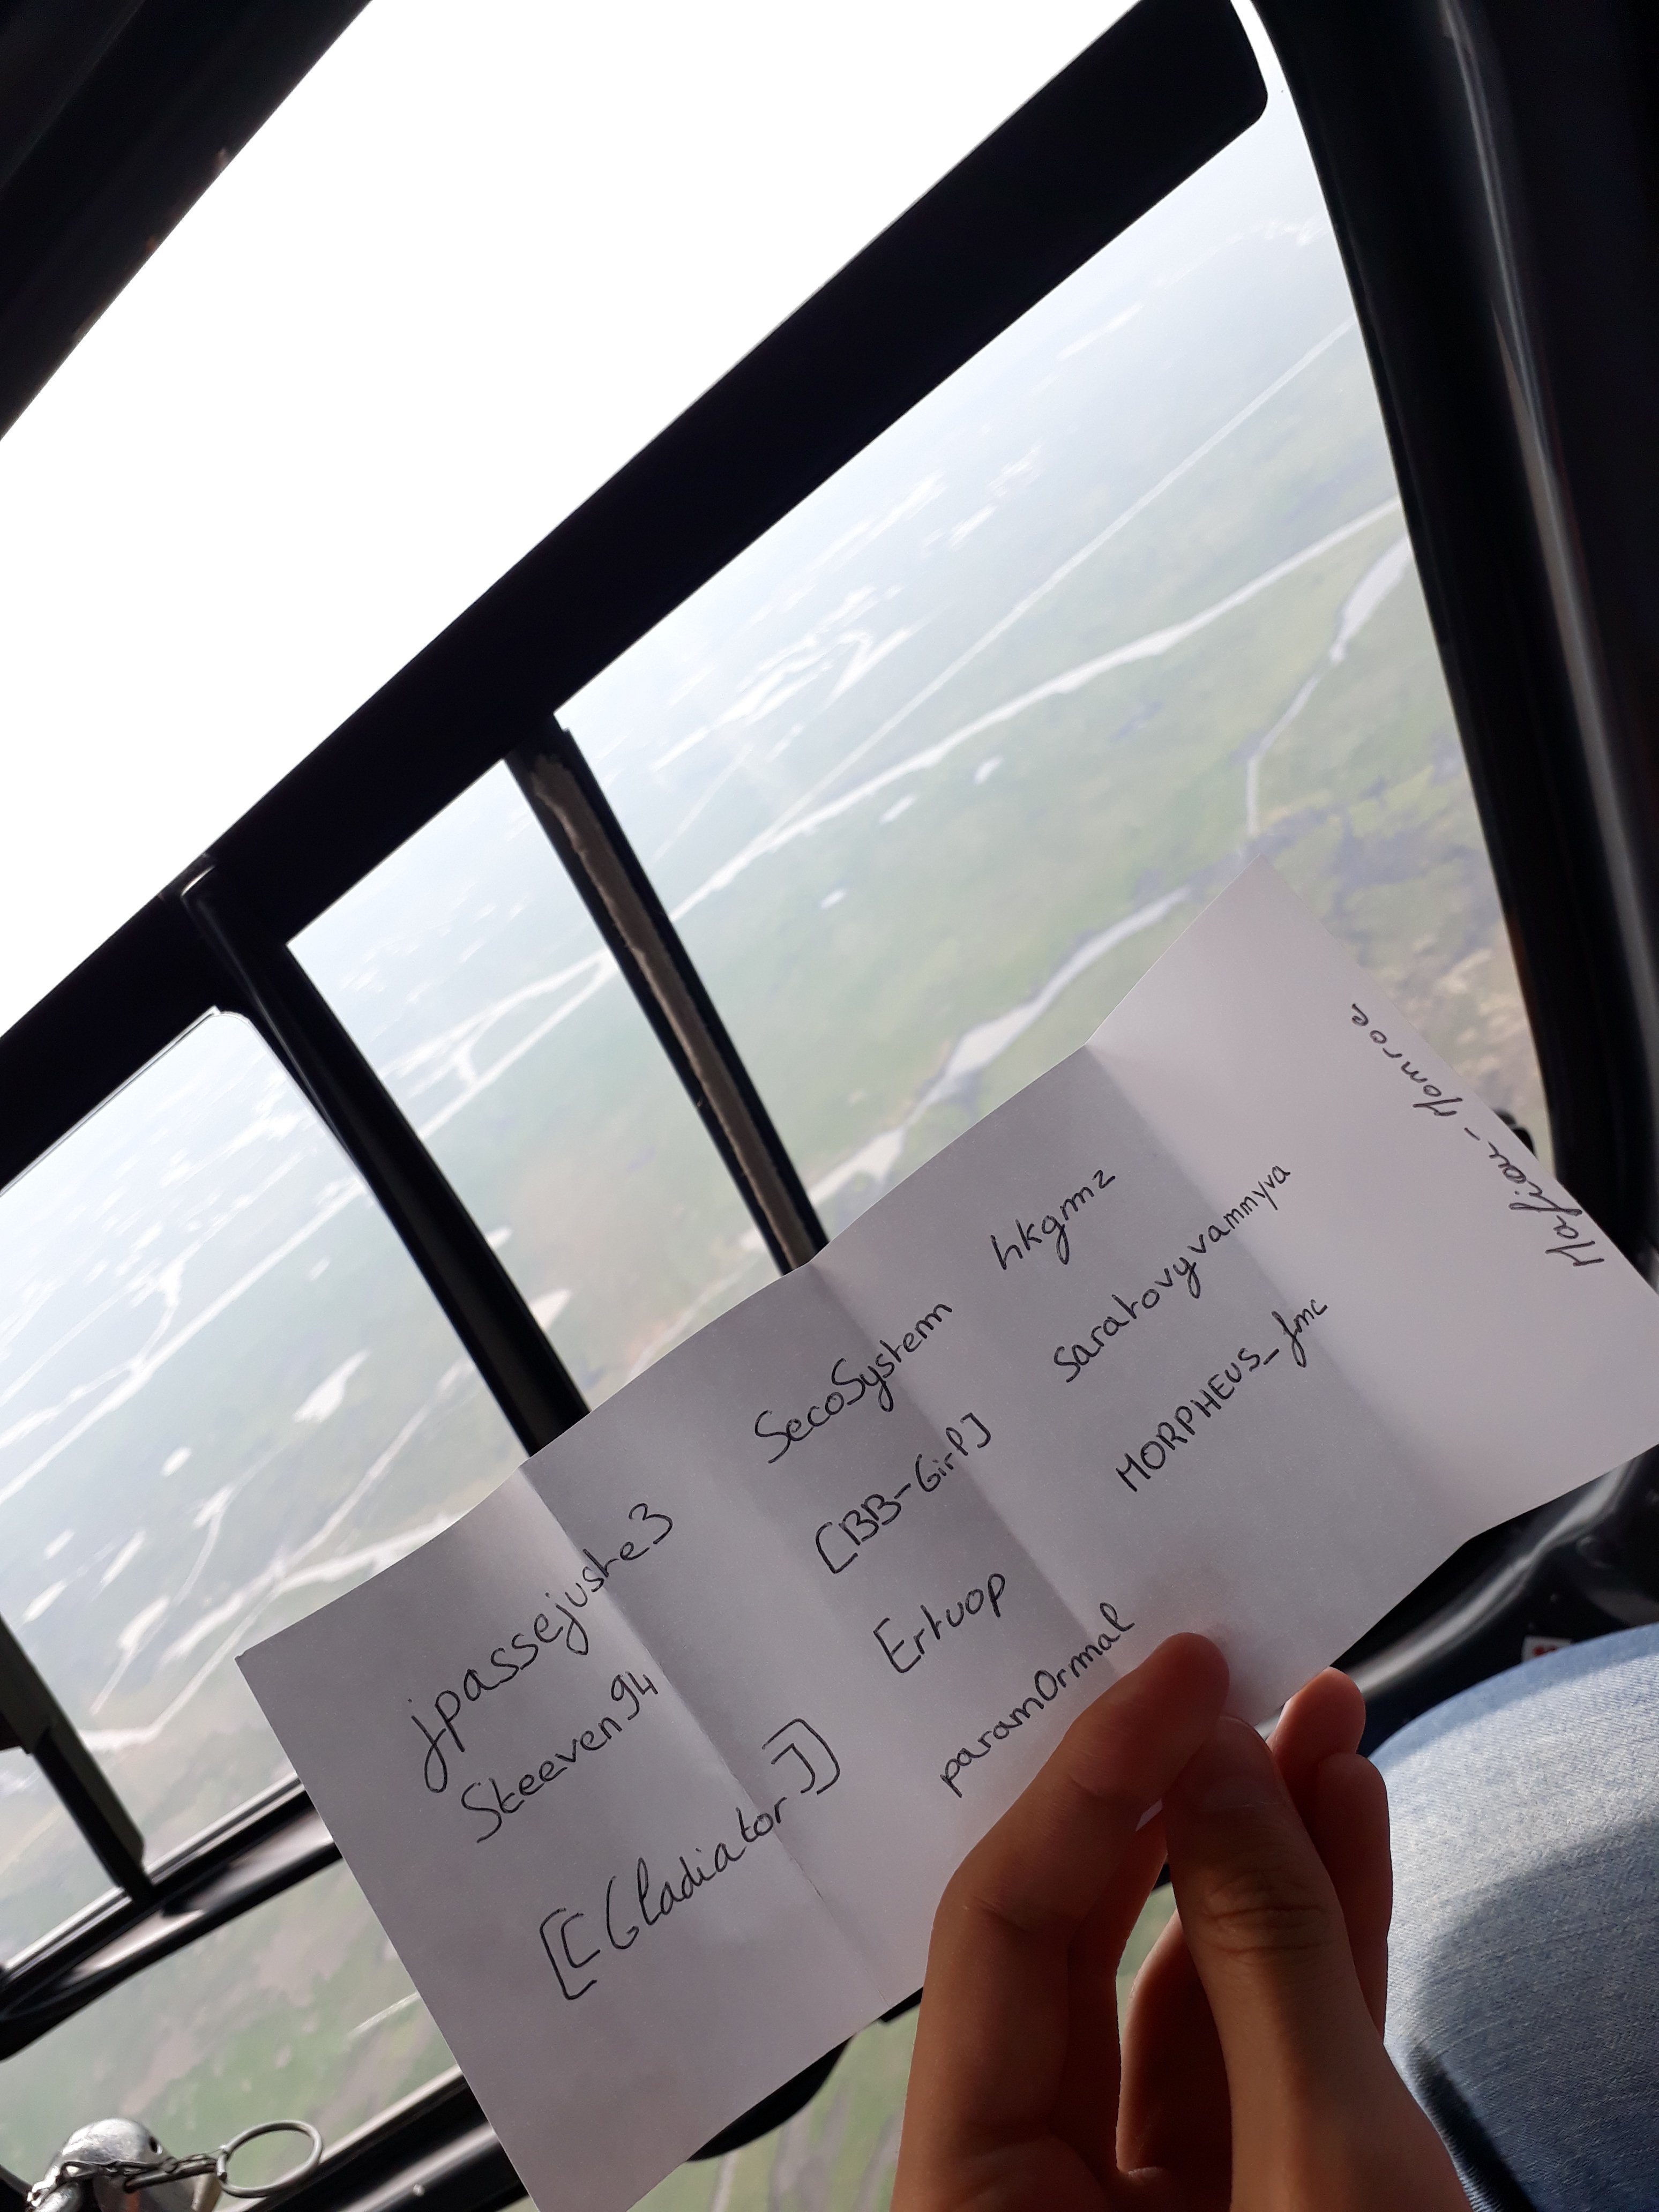 jpassejuste3
Steeven94
[[Gladiator]]
SecoSystem
[BB-Girl]
Ertuop
param0rmal
hkgmz
saratovyvammyva
MORPHEUS_fmc
Mafiou-Monroe